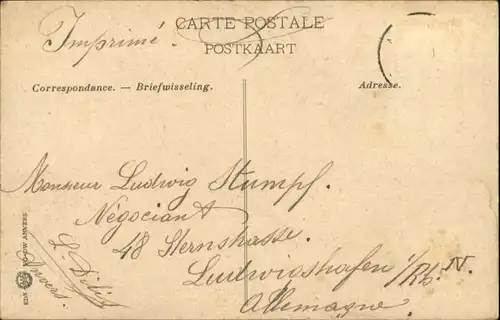 CARTE POSTALE
POSTKAART
Imprimé.
Correspondance. — Briefwisseling.
Adresse.
Monsieur Ludwig Stumpf.
Négociant
48 Sternstrasse.
Ludwigshafen i/Rh. N.
Allemagne
Anvers.
ANVERS